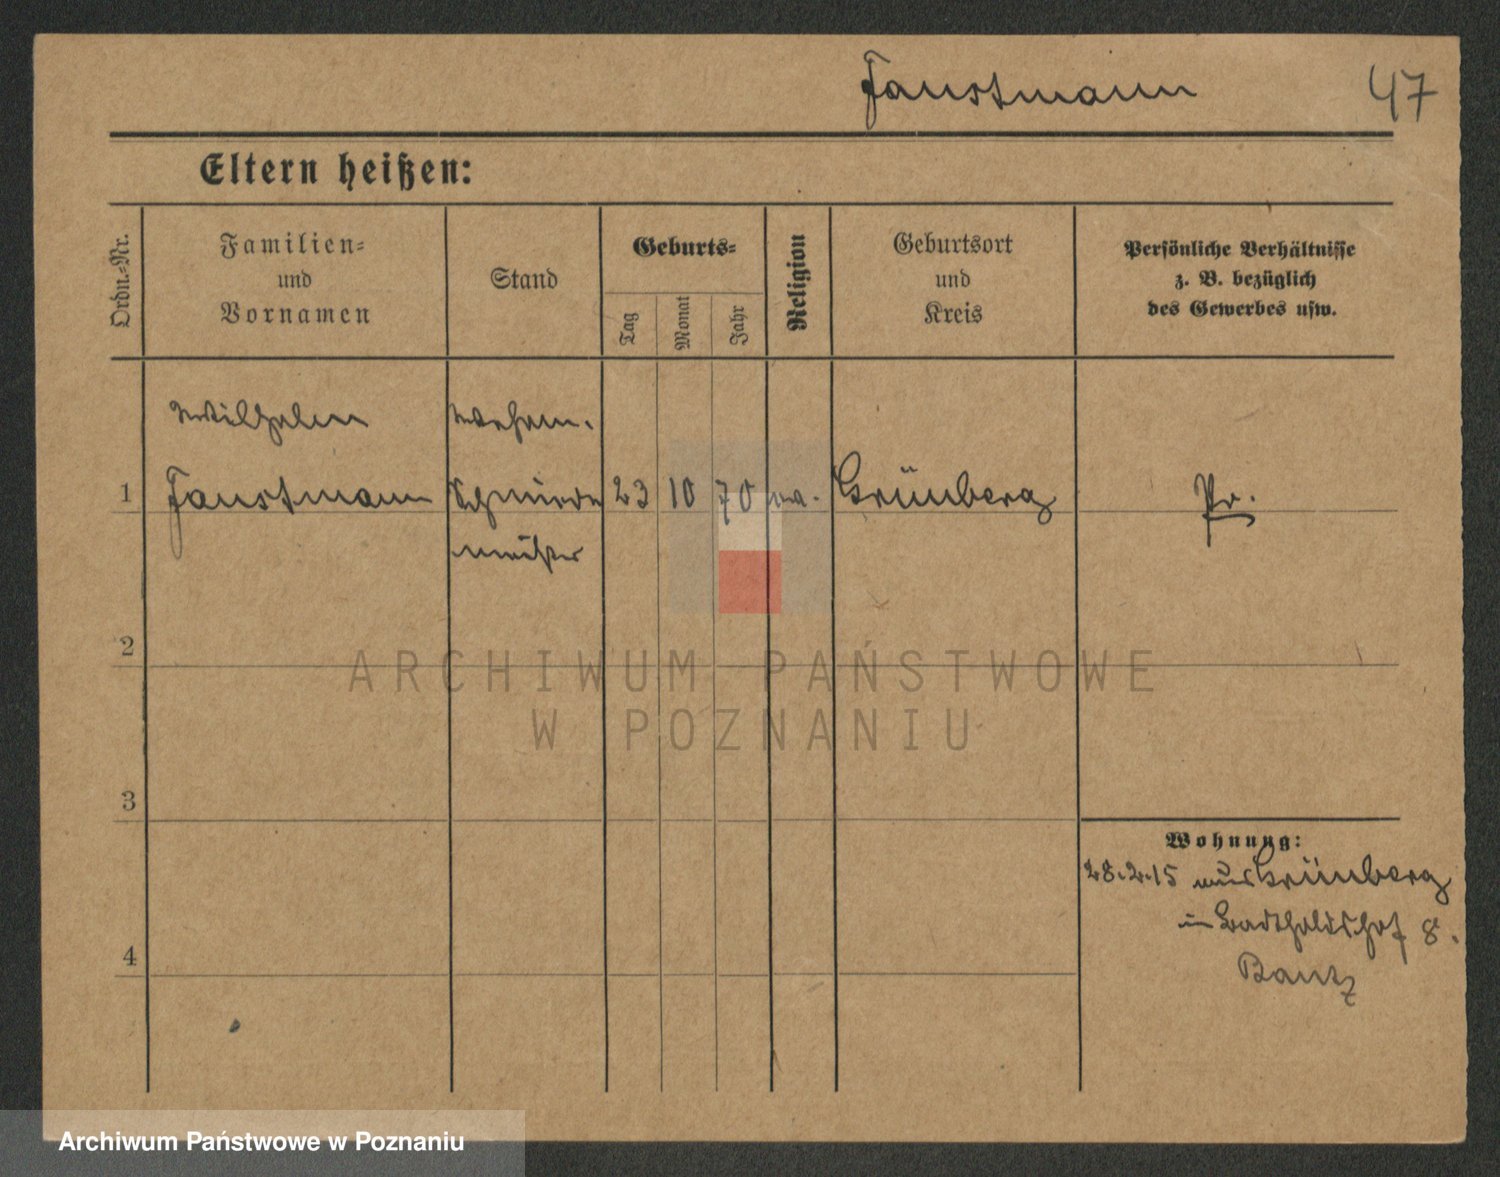 Faustmann 47
Eltern heißen:
Ordn.-Nr.
Familien-
und
Vornamen
Stand
Geburts-
Tag
Monat
Jahr
Religion
Geburtsort
und
Kreis
Persönliche Verhältnisse
z. B. bezüglich
des Gewerbes usw.
Wilhelm
1 Faustmann 23 10 70 ev. Grünberg Pr.
meister
2
3
4
Wohnung:
28.2.15 aus Grünberg
in 8.
Bantz
ARCHIWUM PAŃSTWOWE
W POZNANIU
Archiwum Państwowe w Poznaniu